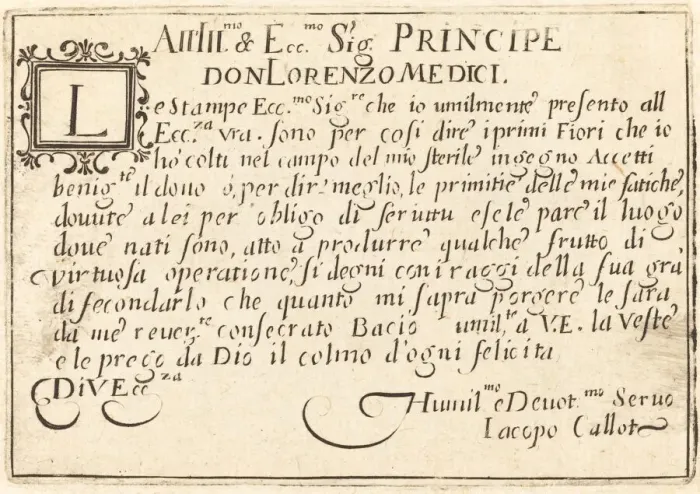 All Ill.mo & Ecc.mo Sig. PRINCIPE
DON LORENZO MEDICI.
Le Stampe Ecc.mo Sig.re che io umilmente presento all
Ecc.za vra. sono per cosi dire i primi Fiori che io
hò colti nel campo del mio sterile ingegno Accetti
benig.te il dono ò, per dir meglio, le primitie delle mie fatiche,
douute a lei per obligo di seruitu e se le pare il luogo
doue nati sono, atto a produrre qualche frutto di
virtuosa operatione, si degni con i raggi della sua gra
di fecondarlo che quanto mi sapra porgere le sara
da me reuer.te consecrato Bacio umil.te a V.E. la veste
e le prego da Dio il colmo d'ogni felicita
Di V Ecc.za
Humil.mo e Deuot.mo Seruo
Iacopo Callot